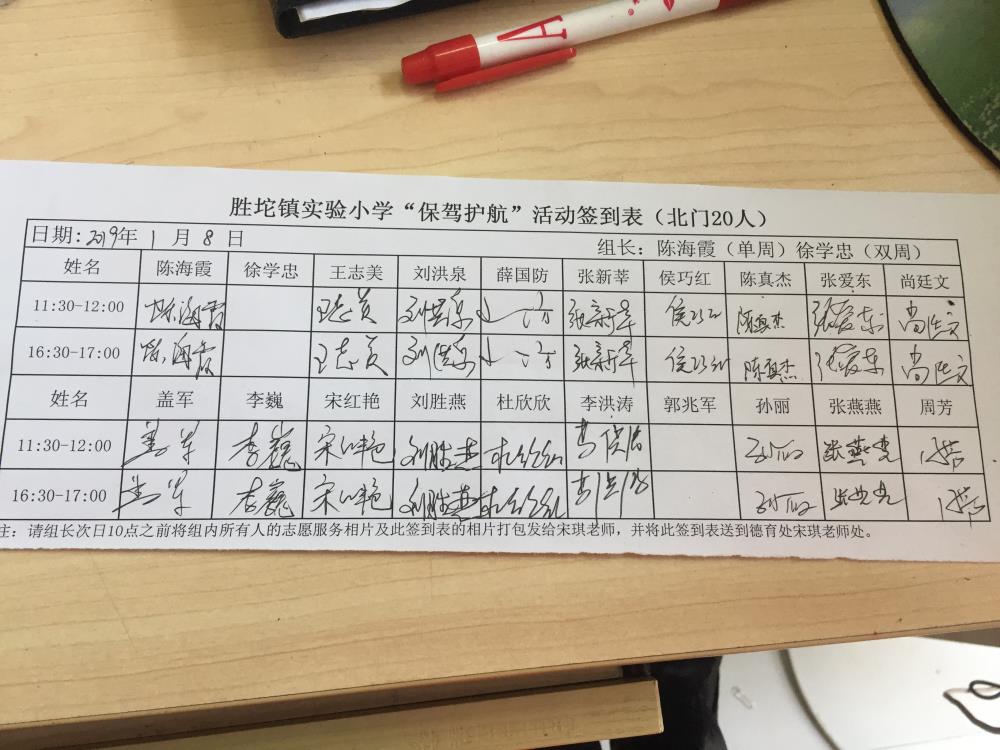 胜坨镇实验小学“保驾护航”活动签到表（北门20人）
日期: 2019年 1 月 8 日 组长：陈海霞（单周）徐学忠（双周）
姓名 陈海霞 徐学忠 王志美 刘洪泉 薛国防 张新莘 侯巧红 陈真杰 张爱东 尚廷文
11:30-12:00 陈海霞 王志美 刘洪泉 张新莘 侯巧红 陈真杰 张爱东 尚廷文
16:30-17:00 陈海霞 王志美 刘洪泉 张新莘 侯巧红 陈真杰 张爱东 尚廷文
姓名 盖军 李巍 宋红艳 刘胜燕 杜欣欣 李洪涛 郭兆军 孙丽 张燕燕 周芳
11:30-12:00 盖军 李巍 宋红艳 刘胜燕 杜欣欣 李洪涛 孙丽 张燕燕 周芳
16:30-17:00 盖军 李巍 宋红艳 刘胜燕 杜欣欣 李洪涛 孙丽 张燕燕 周芳
注：请组长次日10点之前将组内所有人的志愿服务相片及此签到表的相片打包发给宋琪老师，并将此签到表送到德育处宋琪老师处。